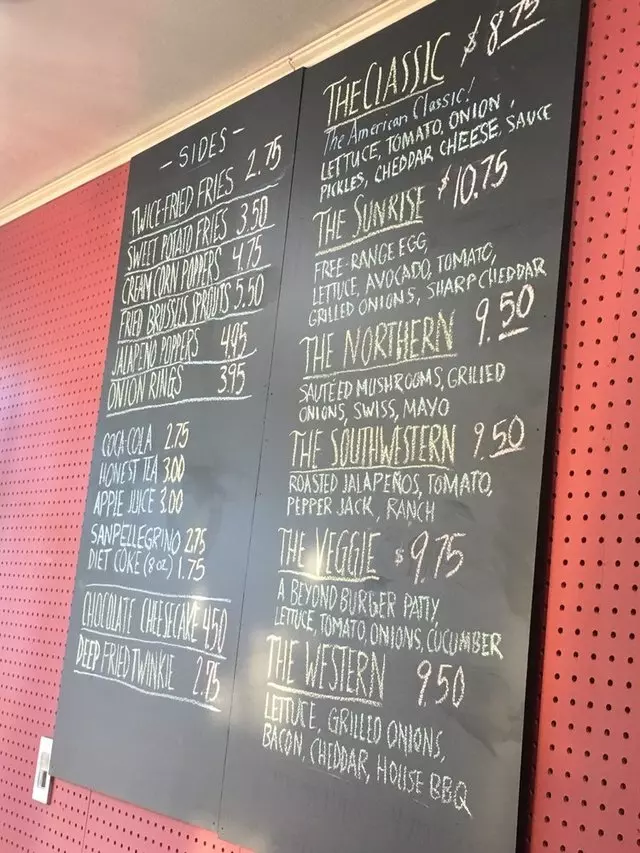 - SIDES -
TWICE-FRIED FRIES 2.75
SWEET POTATO FRIES 3.50
CREAM CORN POPPERS 4.75
FRIED BRUSSUS SPROUTS 5.50
JALAPENO POPPERS 4.95
ONION RINGS 3.95
COCA-COLA 2.75
HONEST TEA 3.00
APPLE JUICE 3.00
SANPELLEGRINO 2.75
DIET COKE (8 oz) 1.75
CHOCOLATE CHEESECAKE 4.50
DEEP FRIED TWINKIE 2.75
THE CLASSIC $8.75
The American Classic!
LETTUCE, TOMATO, ONION,
PICKLES, CHEDDAR CHEESE, SAUCE
THE SUNRISE $10.75
FREE-RANGE EGG,
LETTUCE, AVOCADO, TOMATO,
GRILLED ONIONS, SHARP CHEDDAR
THE NORTHERN 9.50
SAUTÉED MUSHROOMS, GRILLED
ONIONS, SWISS, MAYO
THE SOUTHWESTERN 9.50
ROASTED JALAPEÑOS, TOMATO,
PEPPER JACK, RANCH
THE VEGGIE $9.75
A BEYOND BURGER PATTY,
LETTUCE, TOMATO, ONIONS, CUCUMBER
THE WESTERN 9.50
LETTUCE, GRILLED ONIONS,
BACON, CHEDDAR, HOUSE BBQ